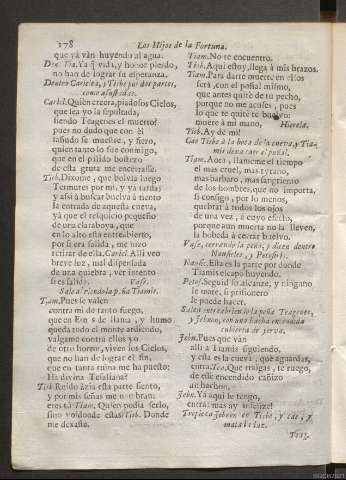 178 Los Hijos de la Fortuna.
que yà vàn huyendo al agua.
Dos. Tia. Ya q vida, y honor pierdo,
no han de lograr su esperanza.
Dentro Cariclea, y Tisbe por dos partes,
como assustadas.
Caricl. Quien creerà, piadosos Cielos,
que sea yo la sepultada,
siendo Teagenes el muerto?
pues no dudo que con èl
sañudo se muestre, y fiero,
quien tanto lo fue conmigo,
que en el palido bostezo
de esta gruta me encerrasse.
Tisb. Dixome, que bolvia luego
Termutes por mi, y yà tarda;
y assi à buscar buelva à tiento
la entrada de aquesta cueva,
yà que el resquicio pequeño
de una claraboya, que
en lo alto està entreabierto,
por si era salida, me hizo
retirar de ella. Caricl. Alli veo
breve luz, mal dispensada
de una quiebra, ver intento
si es salida. Vase.
Sale abriendo la peña Tiamis.
Tiam. Pues le valen
contra mi de tanto fuego,
que en Etnas de llama, y humo
queda todo el monte ardiendo,
valgame contra ellos yo
de otro horror, viven los Cielos,
que no han de lograr el fin,
que en tanta ruina me ha puesto:
Ha divina Tesaliana?
Tisb. Ruido àzia esta parte siento,
y por mis señas me nombran:
eres tù? Tiam. Quien podia serlo,
sino yo? dònde estàs? Tisb. Donde
me dexaste.
Tiam. No te encuentro.
Tisb. Aqui estoy, llega à mis brazos.
Tiam. Para darte muerte en ellos
serà, con el puñal mismo,
que antes quitè de tu pecho,
porque no me acuses, pues
lo que te quitè te buelvo:
muere à mi mano, Hierela.
Tisb. Ay de mi!
Cae Tisbe à la boca de la cueva, y Tiamis
dexa caer el puñal.
Tiam. Aora, llameme el tiempo
el mas cruel, mas tyrano,
mas barbaro, mas sangriento
de los hombres, que no importa,
si consigo, por lo menos,
quebrar à todos los ojos
de una vez, à cuyo efecto,
porque aun muerta no la lleven,
la boveda à cerrar buelvo.
Vase, cerrando la peña, y dicen dentro
Nausicles, y Petosiris.
Nausic. Esta es la parte por donde
Tiamis escapò huyendo.
Petos. Seguid su alcance, y ninguno
le mate, si prisionero
le puede hacer.
Salen entreabriendo la peña Teagenes,
y Jebnon, con una hacha encendida
cubierta de yerva.
Jebn. Pues que vàn
alli à Tiamis siguiendo,
y esta es la cueva, què aguardas?
entra. Tea. Que traigas, te ruego,
de esse encendido cañizo
un hachon.
Jebn. Ya aqui le tengo,
entra: mas ay infelize!
Tropieza Jebnon en Tisbe, y cae, y
mata la luz.
Teag.